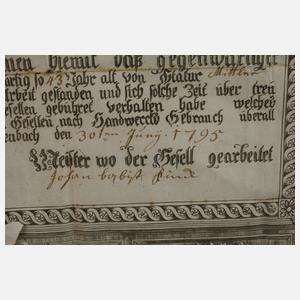 nen hiemit daß gegenwärtige
ärtig so 43 Jahr alt, von Statur Mittler
Arbeit gestanden und sich solche Zeit über treü
esellen gebühret verhalten habe welches
Gesellen nach Handwercks Gebrauch überall
enbach den 30ten Junÿ 1795
Meister wo der Gesell gearbeitet
Johan